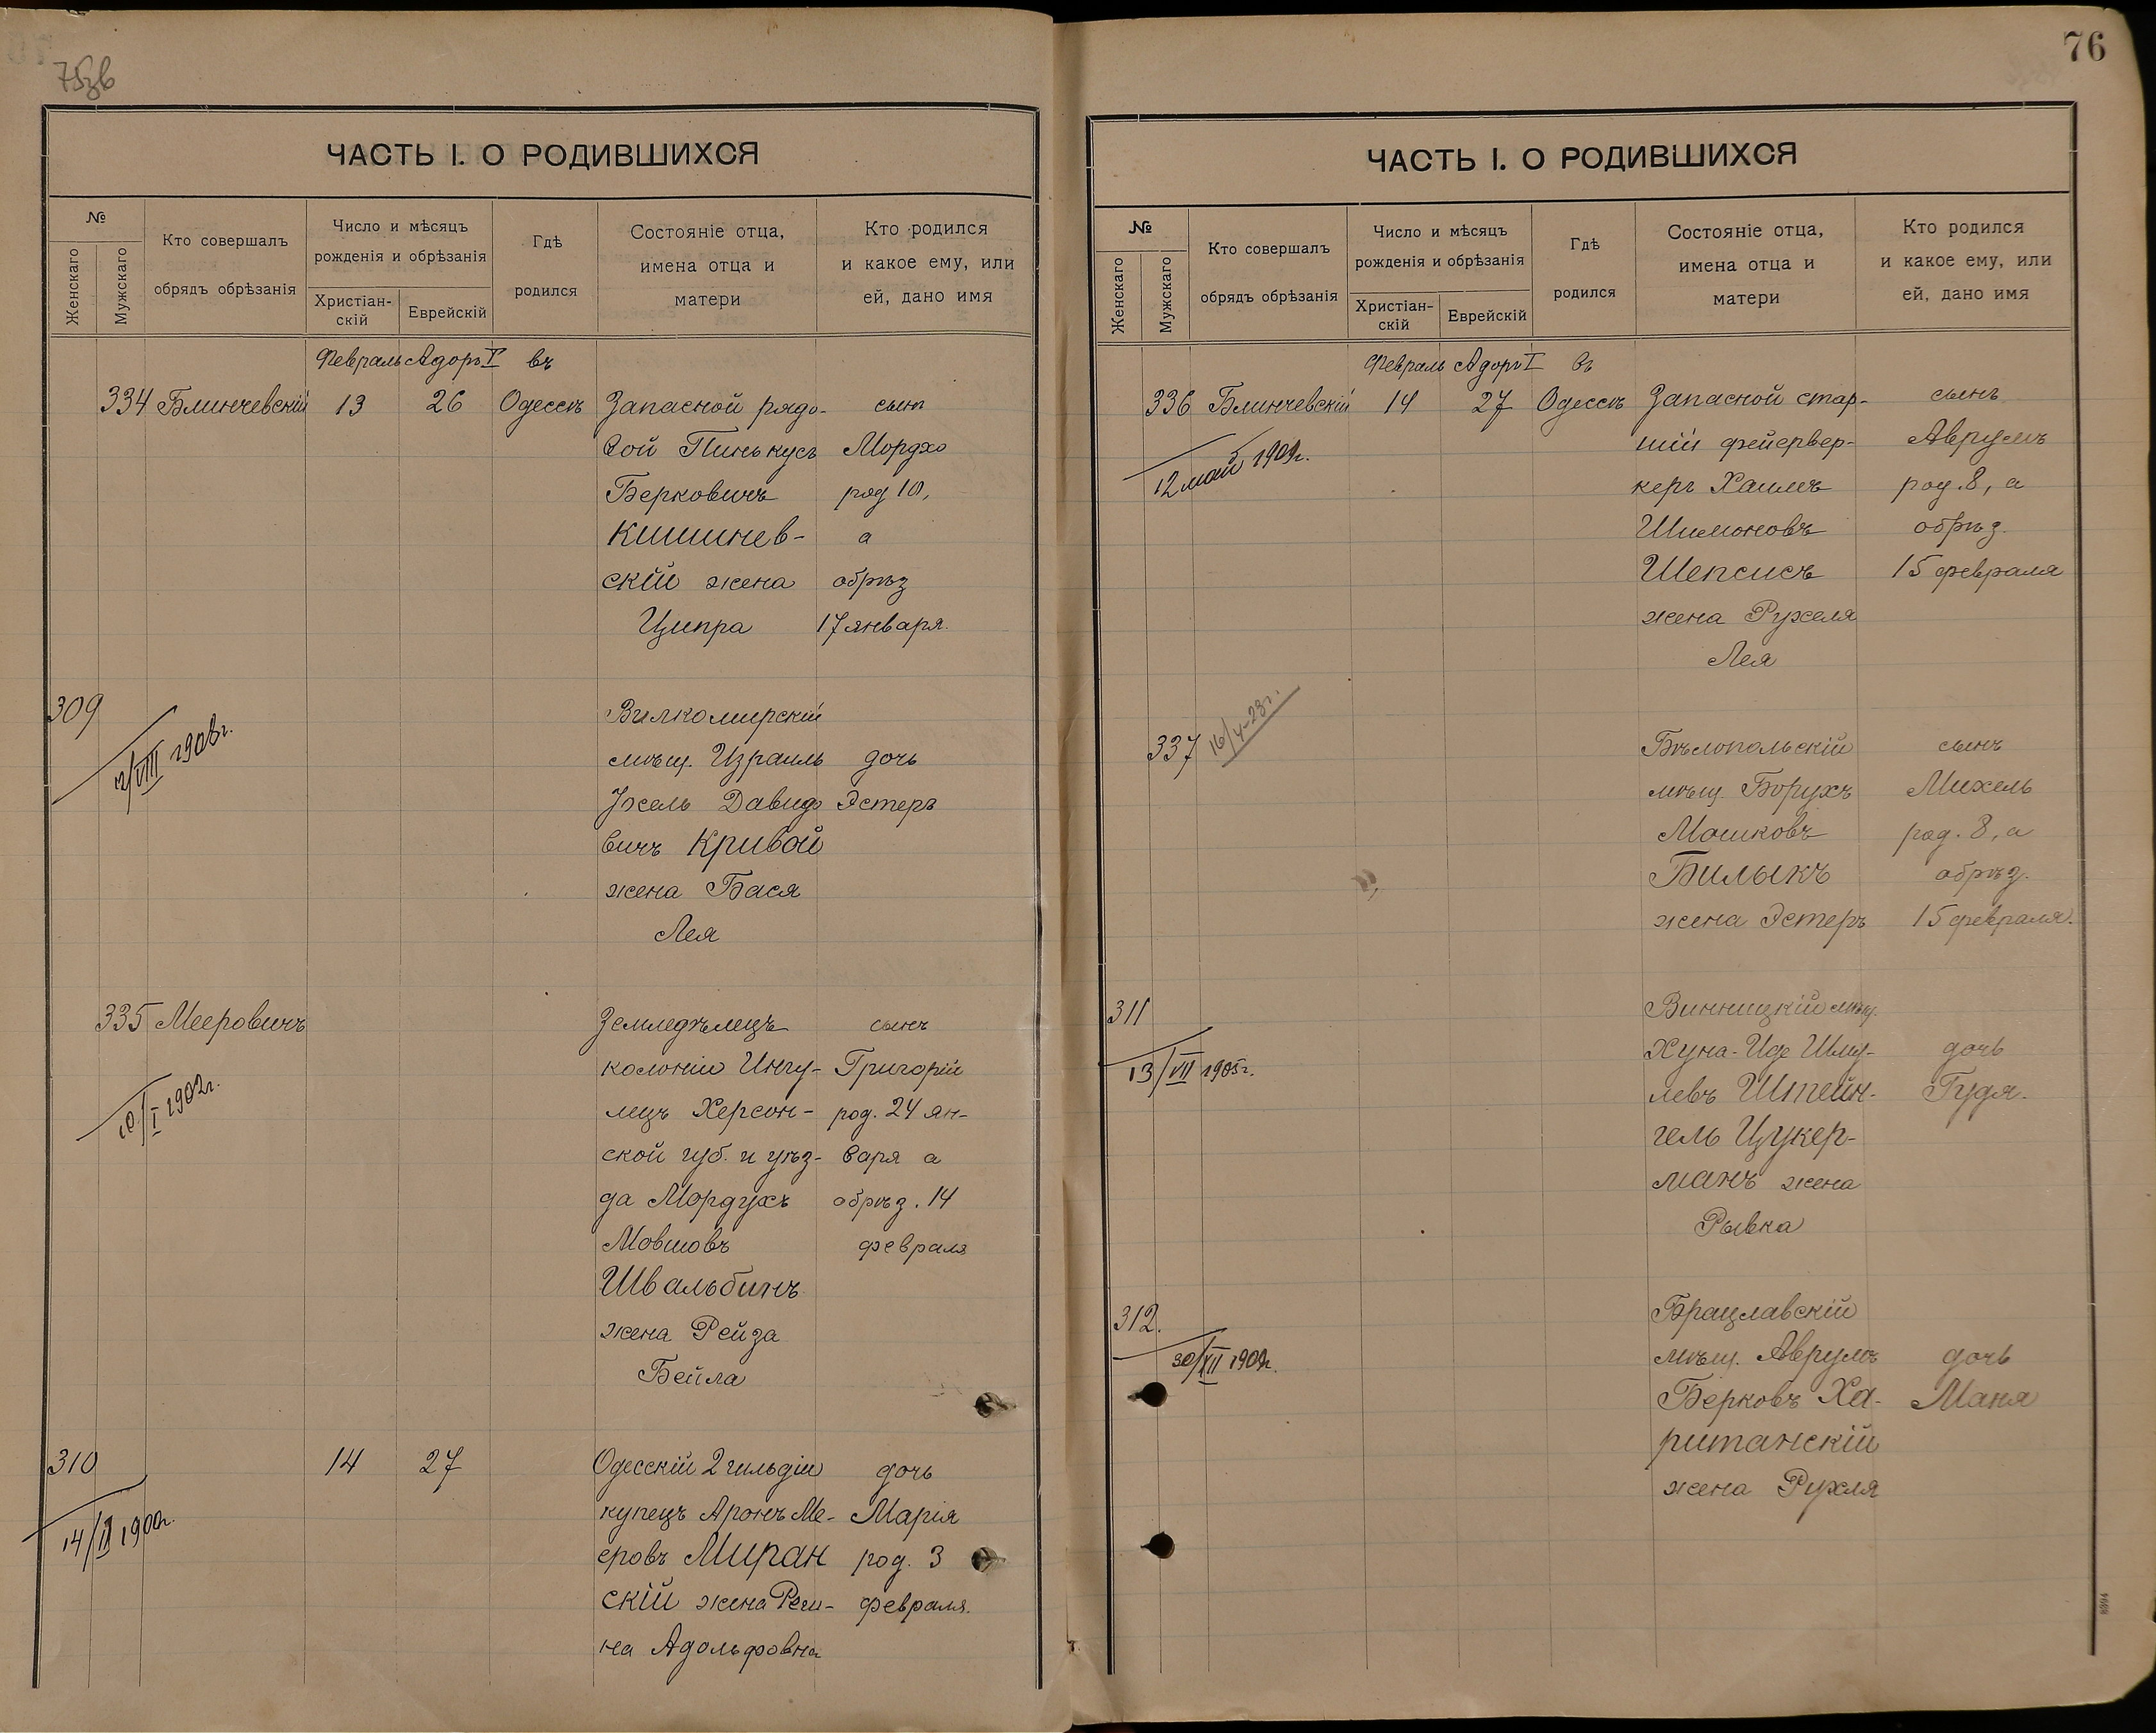 75зв
ЧАСТЬ I. О РОДИВШИХСЯ
№
Женскаго
Мужскаго
Кто совершалъ
обрядъ обрѣзанія
Число и мѣсяцъ
рожденія и обрѣзанія
Христіан-
скій
Еврейскій
Гдѣ
родился
Состояніе отца,
имена отца и
матери
Кто родился
и какое ему, или
ей, дано имя
Февраль Адоръ I въ
334 Блинчевскій 13 26 Одессѣ Запасной рядо- сынъ
вой Пинькусъ Мордхо
Берковичъ род 10,
Кишинев- а
скій жена обрѣз
Ципра 17 января.
309 Вилкомирскій
2/VIII 1908г.
мѣщ. Израиль дочь
Іосель Давидо Эстеръ
вичъ Кривой
жена Бася
Лея
335 Мееровичъ Земледѣлецъ сынъ
10/I 1902г.
колоніи Ингу- Григорій
лецъ Херсон- род. 24 ян-
ской губ. и уѣз- варя а
да Мордухъ обрѣз. 14
Мовшовъ февраля
Швальбинъ
жена Рейза
Бейла
310 14 27 Одесскій 2 гильдіи дочь
14/II 1900г.
купецъ Аронъ Ме- Марія
еровъ Миран род. 3
скій жена Реги- февраля.
на Адольфовна
76
ЧАСТЬ I. О РОДИВШИХСЯ
№
Женскаго
Мужскаго
Кто совершалъ
обрядъ обрѣзанія
Число и мѣсяцъ
рожденія и обрѣзанія
Христіан-
скій
Еврейскій
Гдѣ
родился
Состояніе отца,
имена отца и
матери
Кто родился
и какое ему, или
ей, дано имя
Февраль Адоръ I въ
336 Блинчевскій 14 27 Одессѣ Запасной стар- сынъ
12 май 1909г.
шій фейервер- Аврумъ
керъ Хаимъ род. 8, а
Шимоновъ обрѣз.
Шепсисъ 15 февраля
жена Рухеля
Лея
337 16/4-23г. Бѣлопольскій сынъ
мѣщ. Борухъ Михель
Мошковъ род. 8, а
Билыкъ обрѣз.
жена Эстеръ 15 февраля.
311 Винницкій мѣщ.
13/VII 1905г.
Хуна-Иде Шму- дочь
левъ Штейн- Гудя.
гель Цукер-
манъ жена
Рывка
312. Брацлавскій
30/XII 1909г.
мѣщ. Аврумъ дочь
Берковъ Ха- Маня
ританскій
жена Рухля